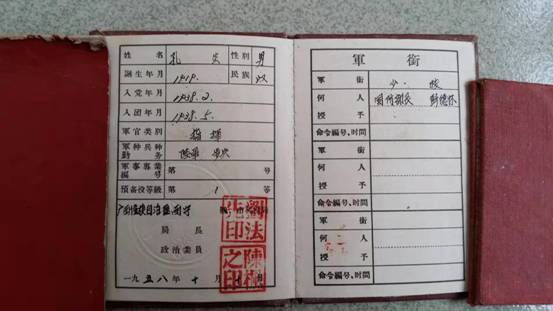 姓名 孔 性别 男
誕生年月 1919. 民族 汉
入党年月 1938.2.
入团年月 1938.5.
軍官类別 指揮
軍种兵种勤务 陸軍
軍事專業編号 第 号
預备役等級 第 1 等
局長
政治委員
一九五八年十月
軍銜
軍銜 少校
何人授予 国防部長 彭德怀
命令編号、时間
軍銜
何人授予
命令編号、时間
軍銜
何人授予
命令編号、时間